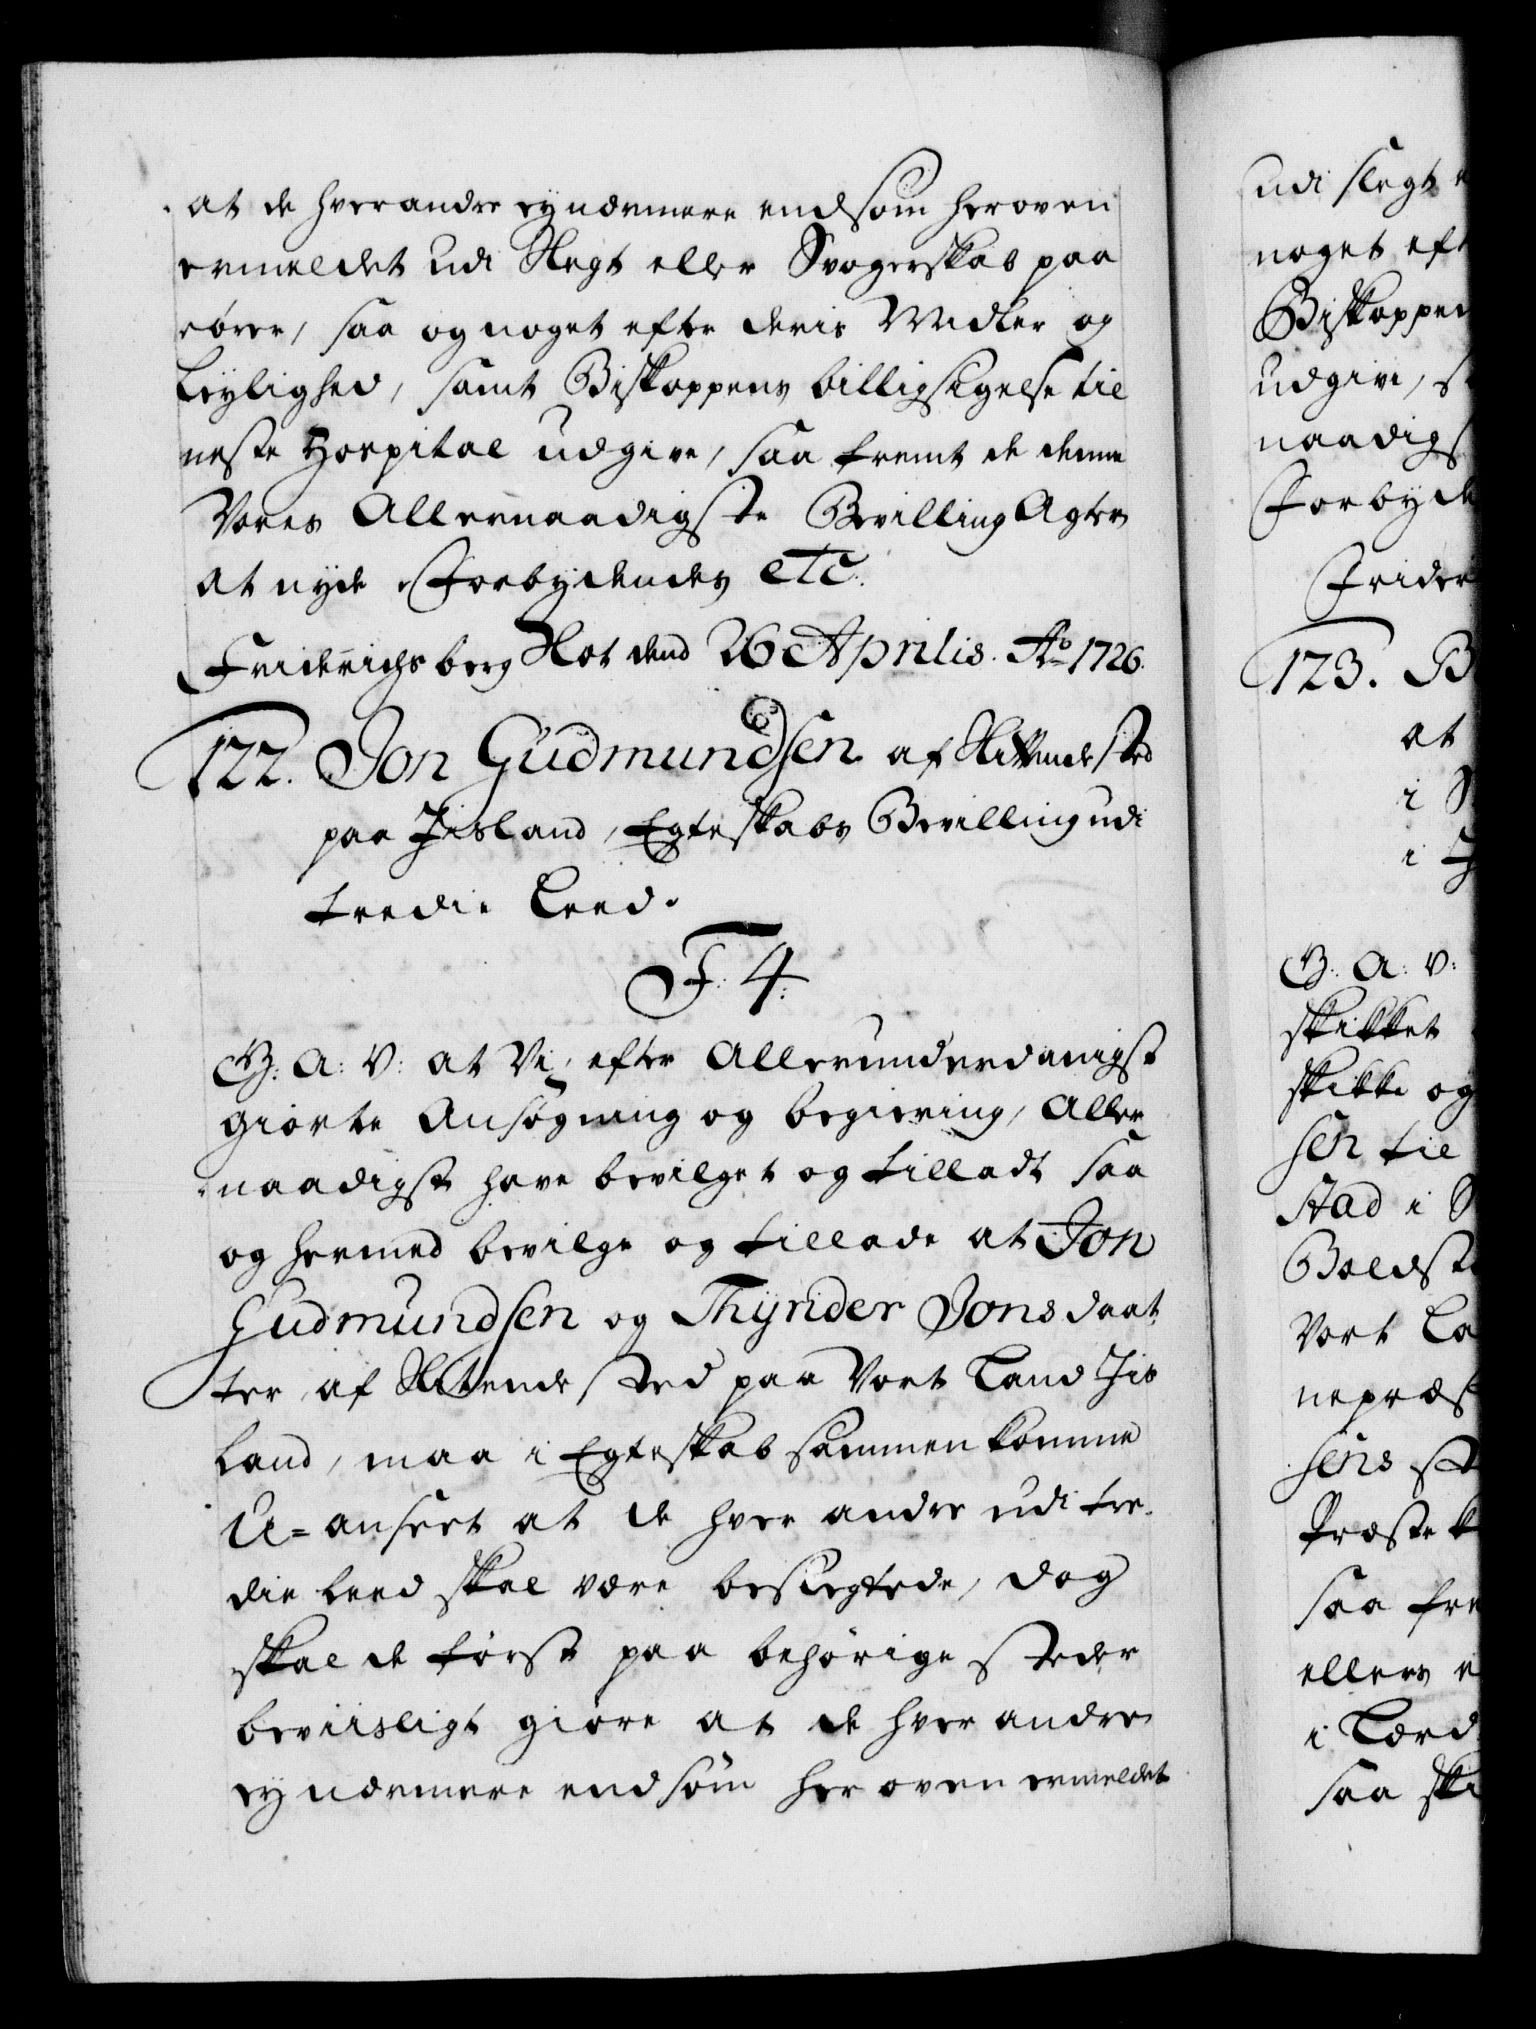 at de hverandre ey nærmere end som heroven
ermeldet udi Slegt eller Svogerskab paa
rører, saa og noget efter deris Midler og
Leylighed, samt Biskoppens billigsigelse til
neste Hospital udgive, saa fremt de denne
Vores Allernaadigste Bevilling Agter
at nyde. Forbydendes etc.
Friderichsberg Slot dend 26 Aprilis. Ao 1726.
122. Jon Gudmundsen af
paa Jisland, Egteskabs Bevilling udi
tredie Leed.
F: 4.
G: A: V: at Vi, efter Allerunderdanigst
giorte Ansøgning og begiering, Aller
naadigst have bevilget og tilladt saa
og hermed bevilge og tillade at Jon
Gudmundsen og Thyrider Jons daat
ter af paa Vort Land Jis
land, maa i Egteskab sammen komme
U=anseet at de hver andre udi tre
die Leed skal være beslegtede, dog
skal de først paa behørige steder
beviisligt giøre at de hver andre
ey nærmere end som her oven ermeldet
udi slegt
noget eft
Biskoppen
udgive, s
naadigs
Forbyde
Frider
123. B
at
i S
i
G: A: V:
skikket
skikke og
sen til
stad i S
Boldst
Vort La
nepræs
sens st
Præste k
saa fre
ellers e
i Lærd
saa ski